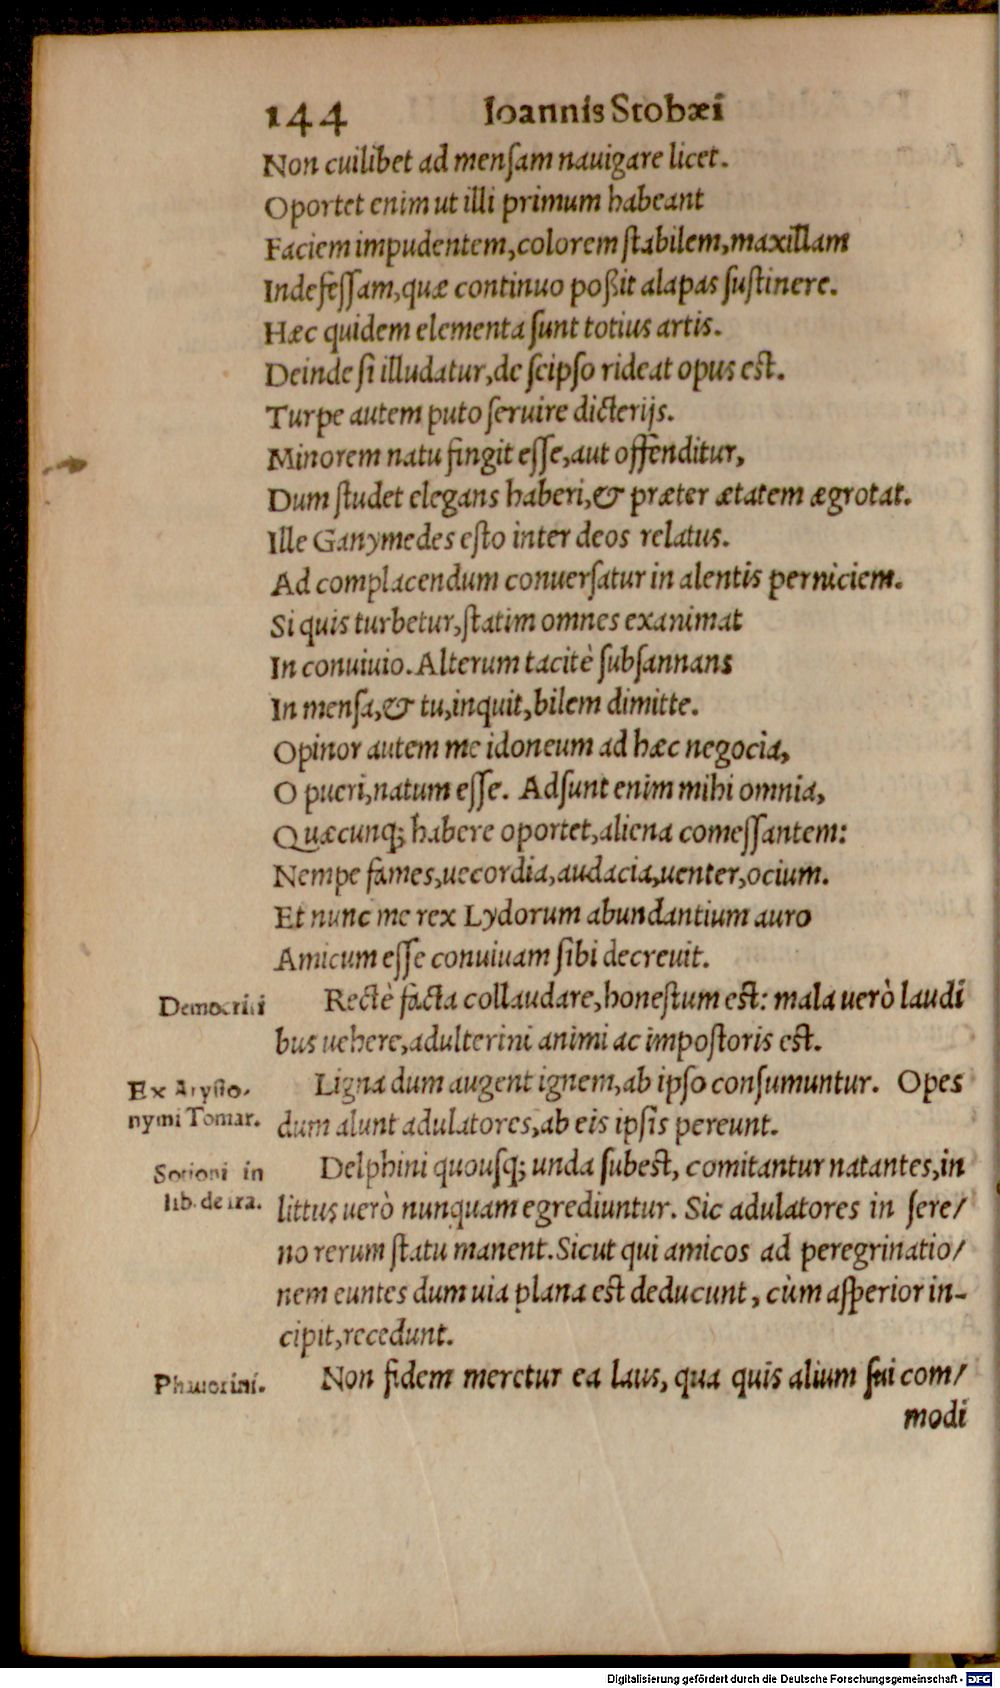 144 Ioannis Stobæi
Non cuilibet ad mensam nauigare licet.
Oportet enim ut illi primum habeant
Faciem impudentem, colorem stabilem, maxillam
Indefessam, quæ continuo poßit alapas sustinere.
Hæc quidem elementa sunt totius artis.
Deinde si illudatur, de seipso rideat opus est.
Turpe autem puto seruire dicterijs.
Minorem natu fingit esse, aut offenditur,
Dum studet elegans haberi, & præter ætatem ægrotat.
Ille Ganymedes esto inter deos relatus.
Ad complacendum conuersatur in alentis perniciem.
Si quis turbetur, statim omnes exanimat
In conuiuio. Alterum tacitè subsannans
In mensa, & tu, inquit, bilem dimitte.
Opinor autem me idoneum ad hæc negocia,
O pueri, natum esse. Adsunt enim mihi omnia,
Quæcunq; habere oportet, aliena comessantem:
Nempe fames, uecordia, audacia, uenter, ocium.
Et nunc me rex Lydorum abundantium auro
Amicum esse conuiuam sibi decreuit.
Democriti Rectè facta collaudare, honestum est: mala uerò laudi
bus uehere, adulterini animi ac impostoris est.
Ex Arysto- Ligna dum augent ignem, ab ipso consumuntur. Opes
nymi Tomar. dum alunt adulatores, ab eis ipsis pereunt.
Sotioni in Delphini quousq; unda subest, comitantur natantes, in
lib. de ira. littus uerò nunquam egrediuntur. Sic adulatores in sere/
no rerum statu manent. Sicut qui amicos ad peregrinatio/
nem euntes dum uia plana est deducunt, cùm asperior in-
cipit, recedunt.
Phauorini. Non fidem meretur ea laus, qua quis alium sui com/
modi
Digitalisierung gefördert durch die Deutsche Forschungsgemeinschaft - DFG